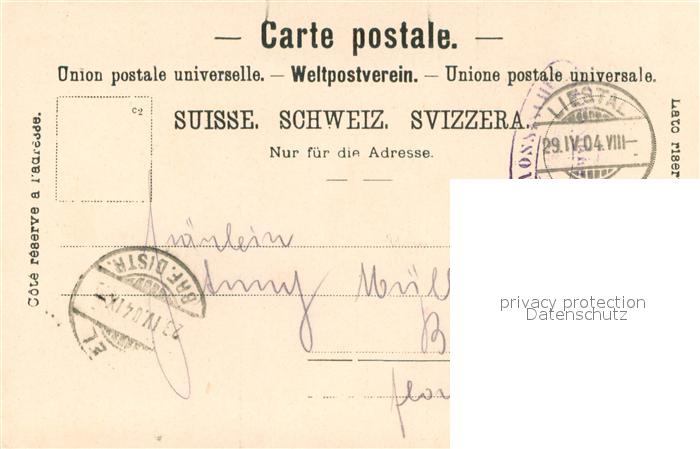 — Carte postale. —
Union postale universelle. — Weltpostverein. — Unione postale universale.
SUISSE. SCHWEIZ. SVIZZERA.
Nur für die Adresse.
c2
Côté réservé à l'adresse.
Lato riser
LIESTAL
29.IV.04.VIII—
Fräulein
Anny Müll
B
BRF. DISTR.
privacy protection
Datenschutz